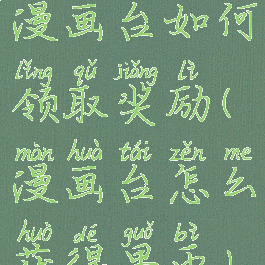 漫画台如何
lǐng qǔ jiǎng lì
领取奖励(
màn huà tái zěn me
漫画台怎么
huò dé guǒ bì
获得果币)